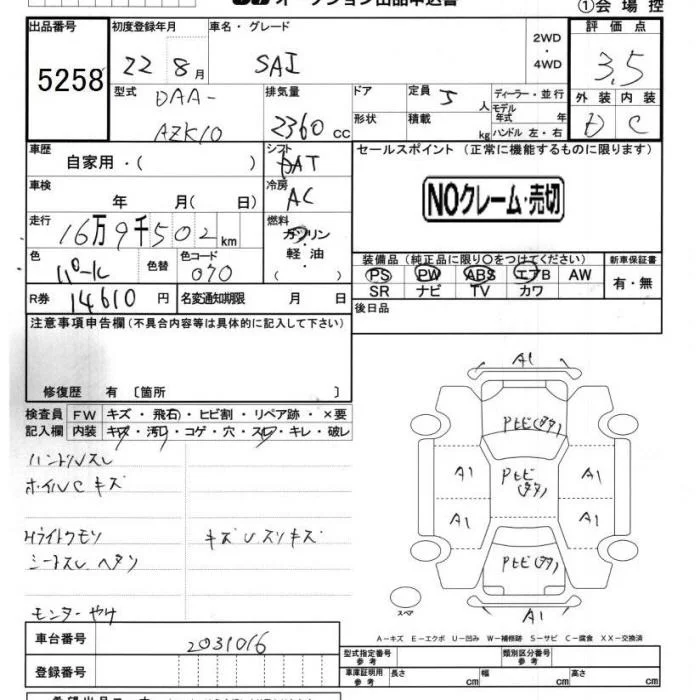 オークション出品申込書
①会場控
出品番号 初度登録年月 車名・グレード 2WD・4WD 評価点
5258 22 8月 SAI 3.5
型式 排気量 ドア 定員 5人 ディーラー・並行 外装 内装
DAA- 2360cc 形状 積載 kg モデル年式 年 D C
AZK10 ハンドル 左・右
車歴 シフト セールスポイント (正常に機能するものに限ります)
自家用・( ) AT
車検 冷房 NOクレーム・売切
年 月( 日) AC
走行 燃料
16万9千502km ガソリン・軽油
色 色替 色コード ( ) 装備品 (純正品に限り○をつけてください) 新車保証書
パール 070 PS PW ABS エアB AW 有・無
R券 14610円 名変通知期限 月 日 SR ナビ TV カワ
注意事項申告欄(不具合内容等は具体的に記入して下さい) 後日品
修復歴 有 〔箇所 〕
検査員 FW キズ・飛石・ヒビ割・リペア跡・×要
記入欄 内装 キズ・汚レ・コゲ・穴・スレ・キレ・破レ
ハンドルスレ
ホイルCキズ
Hライトクモリ キズUスリキズ
シートスレ ヘタリ
モンターヤケ
A1
A1 A1
A1 A1
A1
スペア
A-キズ E-エクボ U-凹み W-補修跡 S-サビ C-腐食 XX-交換済
車台番号 2031016 型式指定番号 参考 類別区分番号 参考
登録番号 車庫証明用 参考 長さ cm 幅 cm 高さ cm
希望出品コーナー